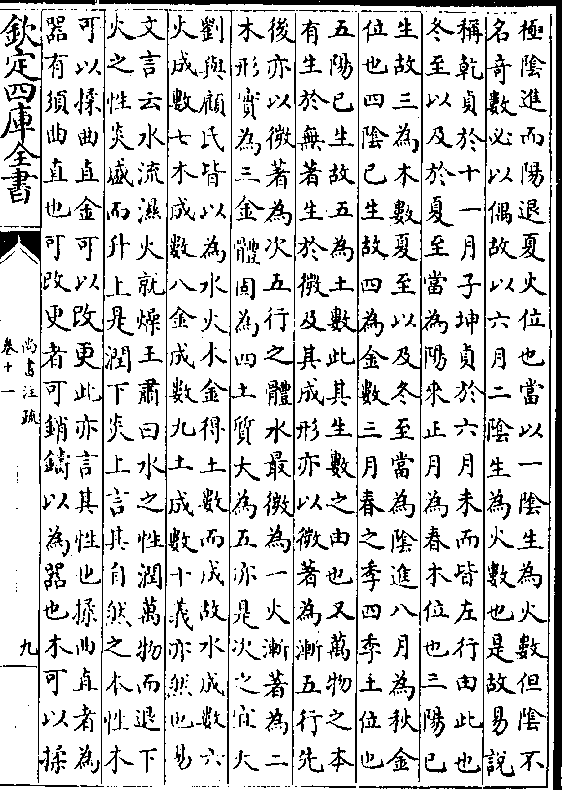 極陰進而陽退夏火位也當以一陰生為火數但陰不
名奇數必以偶故以六月二陰生為火數也是故易說
稱乾貞於十一月子坤貞於六月未而皆左行由此也
冬至以及於夏至當為陽來正月為春木位也三陽已
生故三為木數夏至以及冬至當為陰進八月為秋金
位也四陰已生故四為金數三月春之季四季土位也
五陽已生故五為土數此其生數之由也又萬物之本
有生於無著生於微及其成形亦以微著為漸五行先
後亦以微著為次五行之體水最微為一火漸著為二
木形實為三金體固為四土質大為五亦是次之宜大
劉與顧氏皆以為水火木金得土數而成故水成數六
火成數七木成數八金成數九土成數十義亦然也易
文言云水流濕火就燥王肅曰水之性潤萬物而退下
火之性炎盛而升上是潤下炎上言其自然之本性木
可以揉曲直金可以改更此亦言其性也揉曲直者為
器有須曲直也可改更者可銷鑄以為器也木可以揉
欽定四庫全書
尚書注疏
卷十一
九